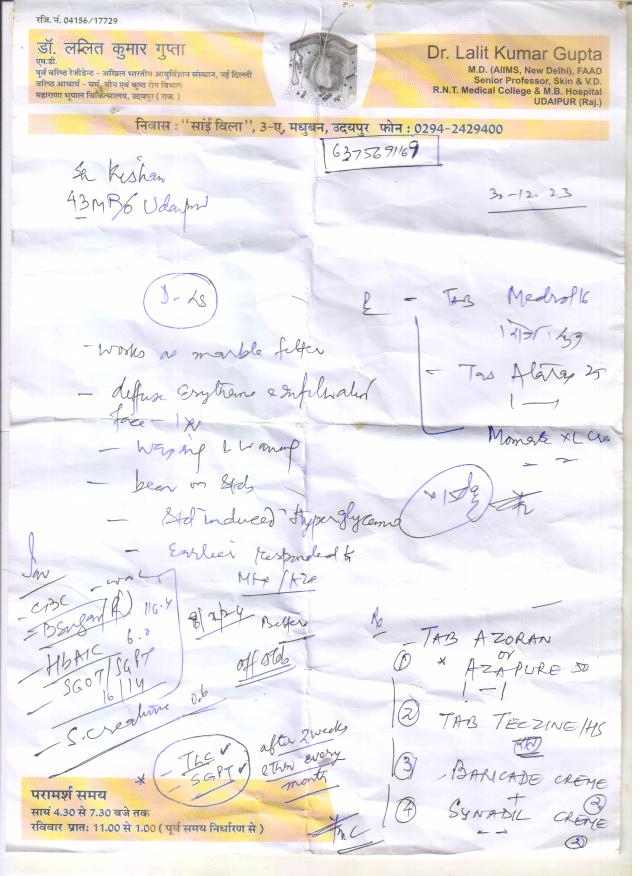 रजि. नं. 04156/17729
डॉ. ललित कुमार गुप्ता
एम.डी.
पूर्व वरिष्ठ रेजीडेन्ट - अखिल भारतीय आयुर्विज्ञान संस्थान, नई दिल्ली
वरिष्ठ आचार्य - चर्म, यौन एवं कुष्ठ रोग विभाग
महाराणा भूपाल चिकित्सालय, उदयपुर ( राज. )
Dr. Lalit Kumar Gupta
M.D. (AIIMS, New Delhi), FAAD
Senior Professor, Skin & V.D.
R.N.T. Medical College & M.B. Hospital
UDAIPUR (Raj.)
निवास : "सांई विला", 3-ए, मधुबन, उदयपुर फोन : 0294-2429400
6375691169
Kishan
43 Udaipur
30-12-23
- works as marble fitter
- diffuse Erythema & infiltration
face -
- waxing & waning
- been on Stds
- Std induced Hyperglycemia
- Earlier responded to
Mtx / Aza
Better
off Stds
- TAB Medrol 16
- Tab Atarax 25
Momate XL Cre
Inv
- CBC
- BSugar (R) 116.4
- HbA1C 6.0
- SGOT/SGPT
16/14
- S. creatinine 0.6
* - TLC ✓
- SGPT ✓
after 2 weeks
then every
month
- TAB AZORAN
or
① * AZAPURE 50
1 - 1
② TAB TECZINE/HS
③ BARICADE CREME
+ ②
④ SYNADIL CREME
②
परामर्श समय
सायं 4.30 से 7.30 बजे तक
रविवार प्रातः 11.00 से 1.00 ( पूर्व समय निर्धारण से )